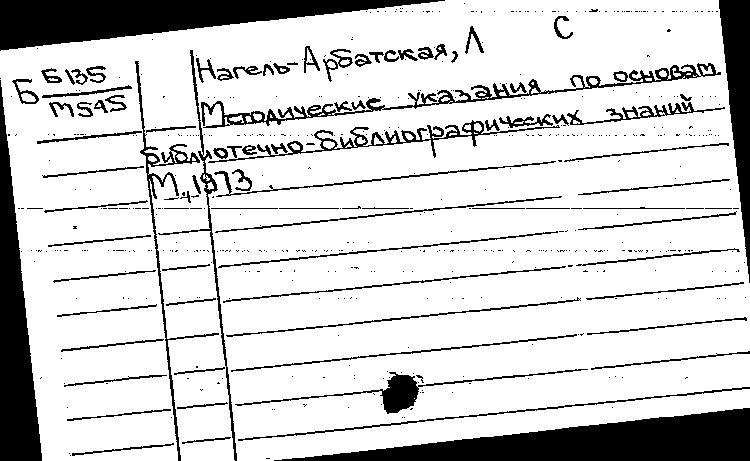 С
Нагель-Арбатская, Л
Б Б135
М545
Методические указания по основам
библиотечно-библиографических знаний
М., 1973.